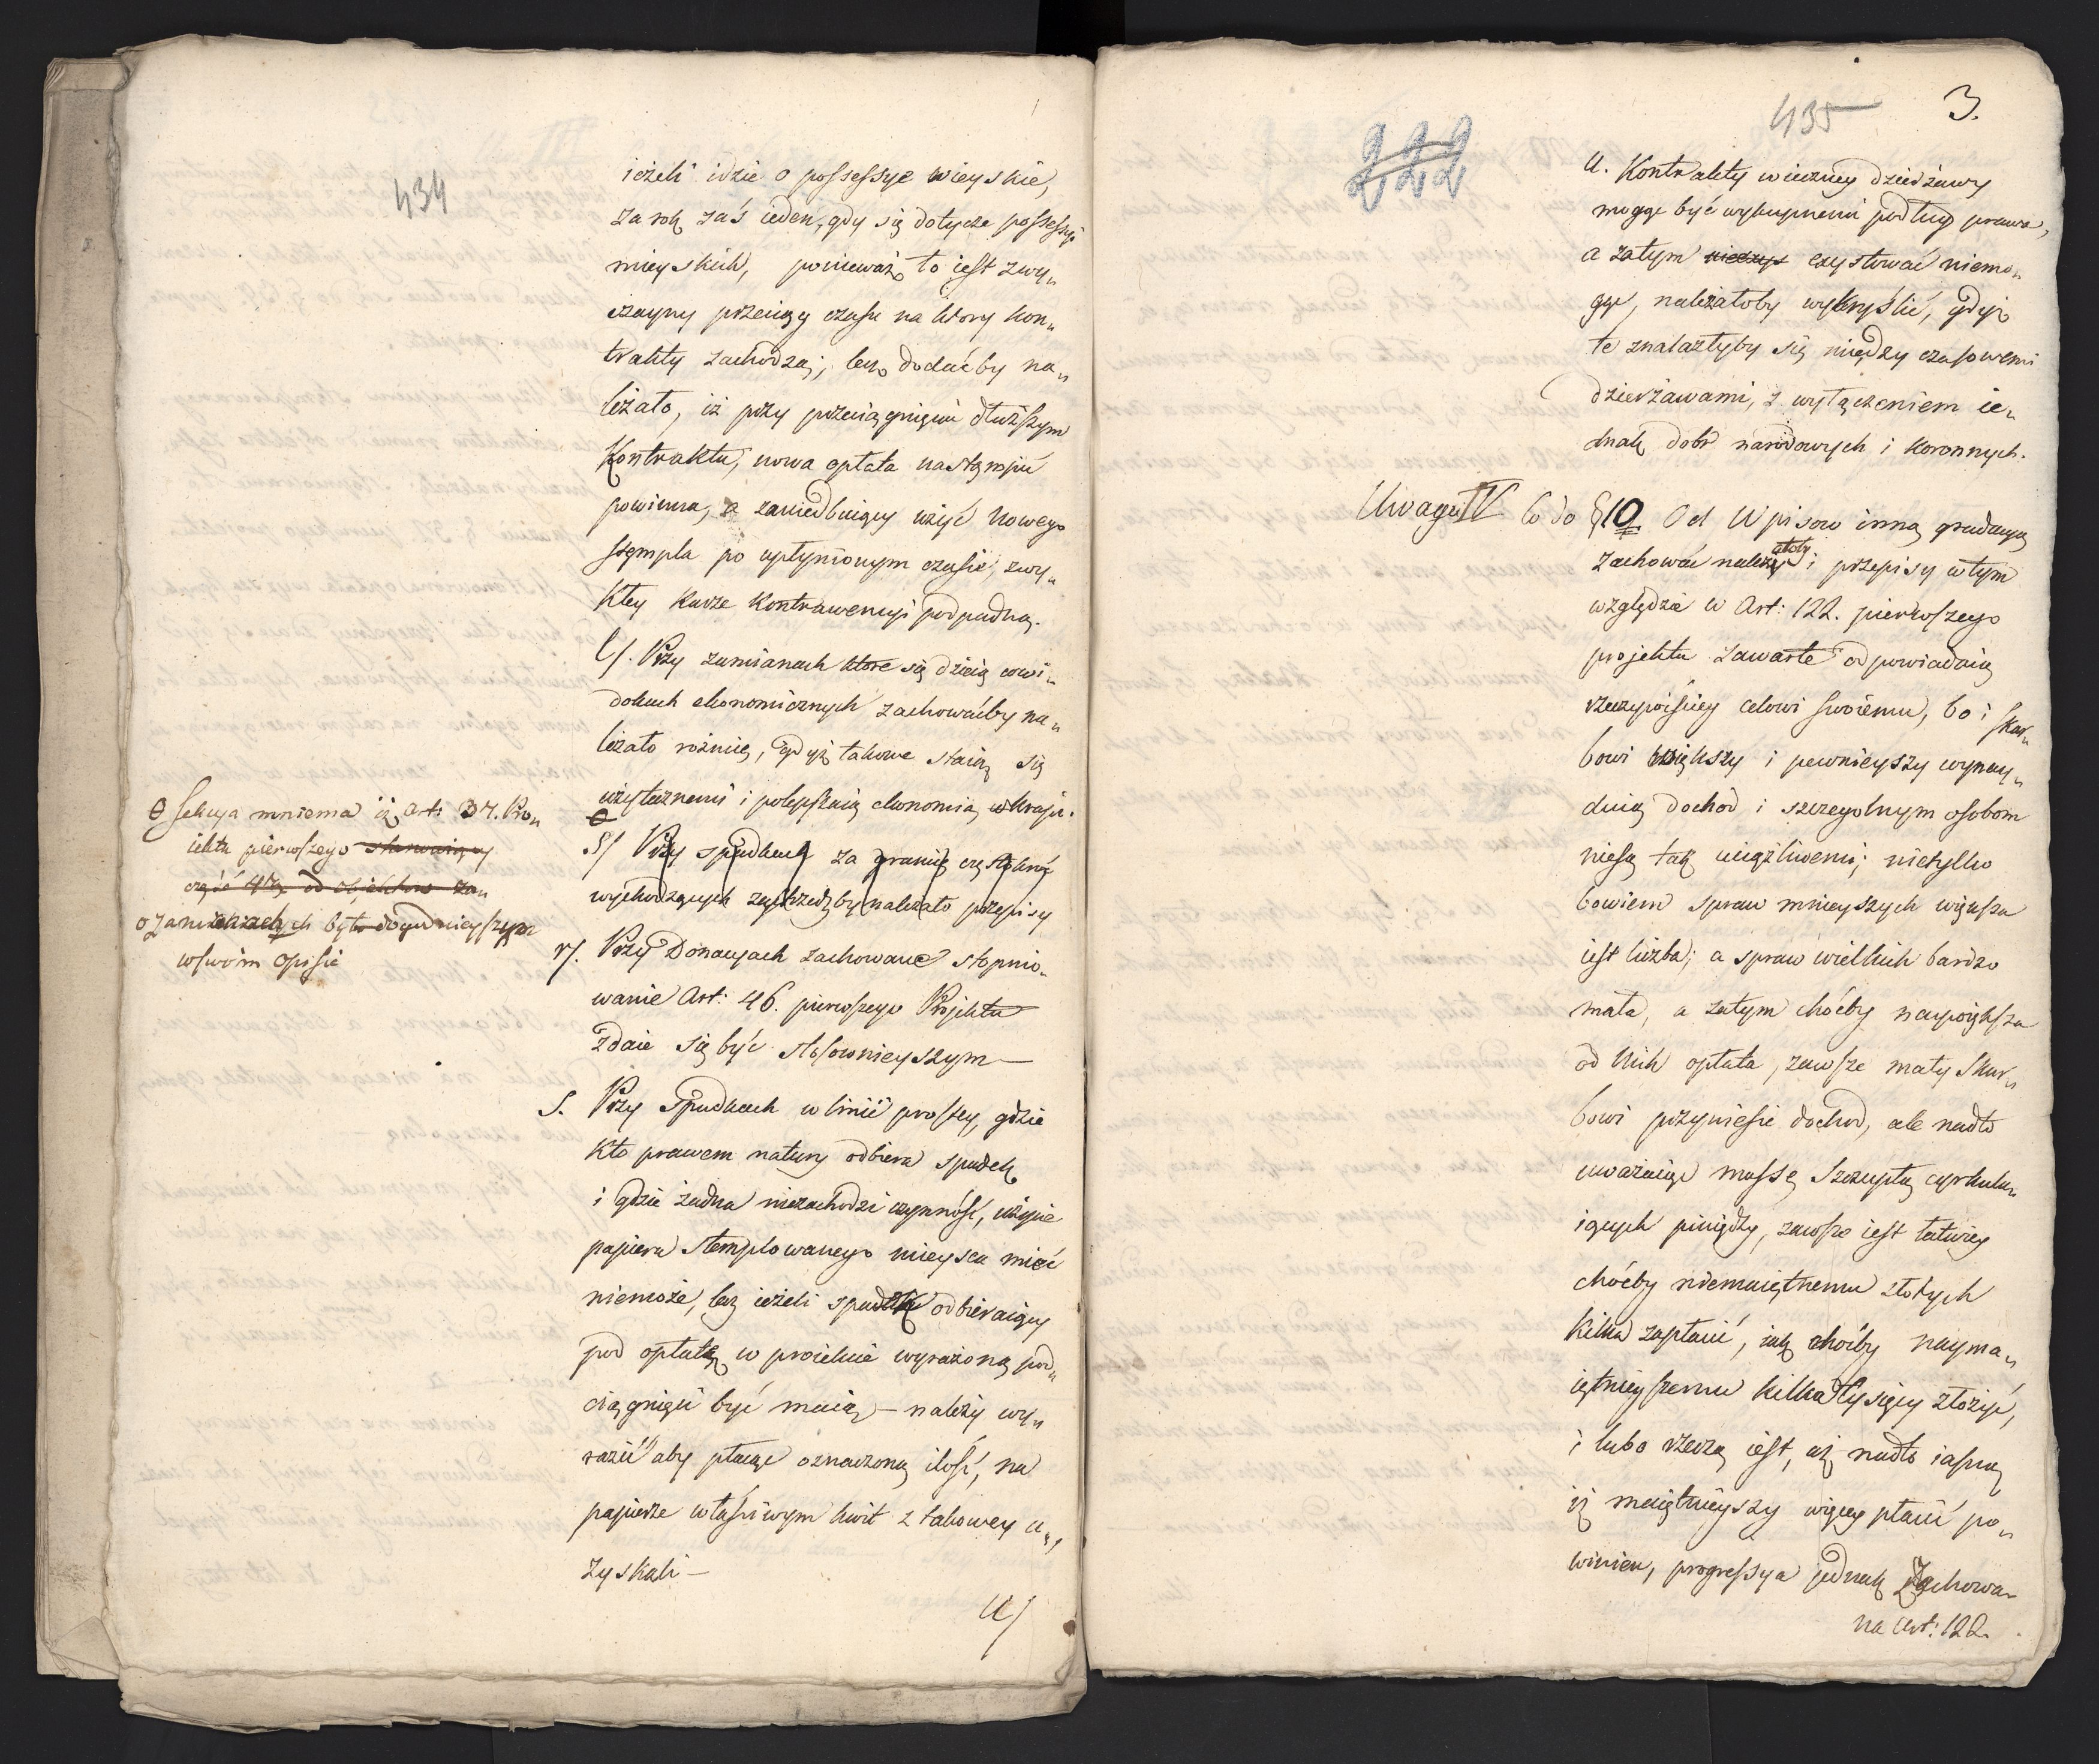 434
ieżeli idzie o possessye wieyskie,
za rok zaś ieden, gdy się dotycze possessyi
mieyskich, ponieważ to iest zwy„
czayny przeciąg czasu na który kon„
trakty zachodzą; lecz dodać by na„
leżało, iż przy przeciągnięciu dłuższym
Kontraktu, nowa opłata nastąmpić
powinna, a zaniedbuiący użyć nowego
stęmpla po upłynionym czasie, zwy„
kłey karze kontrawencyi podpadną.
l/. Przy zamianach które się dzieią w wi„
dokach ekonomicznych zachowaćby na„
leżało różnicę, gdyż takowe staią się
użytecznemi i polepszaią ekonomią w kraju.
Sekcya mniema iż Art: 37. Pro„
iektu pierwszego stanowiący
część 4tą od objektów za„
o zamianach był dogodnieyszym
w swoim opisie
S/ Przy spadkach za granicę częstokroć
wychodzących zastrzedz by należało przepisy
r/. Przy Donacyach zachowane stopnio„
wanie Art: 46. pierwszego Projektu
zdaie się być stosownieyszym —
S. Przy Spadkach w linii prostey, gdzie
kto prawem natury odbiera spadek
i gdzie żadna niezachodzi czynność, użycie
papieru stemplowanego mieysca mieć
niemoże, lecz ieżeli spadek odbieraiący
pod opłatę w proiekcie wyrażoną pod„
ciągnięci być maią — należy wy„
razić aby płacąc oznaczoną ilość, na
papierze właściwym kwit z takowey u„
zyskali —
U/
222
435
3.
U. Kontrakty wieczney dzierżawy
mogąc być wykupnemi podług prawa,
a zatym exystować niemo„
gąc, należałoby wykryślić, gdyż
te znalazłyby się między czasowemi
dzierżawami, z wyłączeniem ie„
dnak dobr narodowych i koronnych.
Uwaga IV Co do § 10 Od Wpisow inną gradacyą
zachować należałoby i przepisy w tym
względzie w Art: 122. pierwszego
projektu zawarte odpowiadaią
rzeczywiściey celowi swoiemu, bo i skar„
bowi większy i pewnieyszy wynay„
duią dochod i szczegolnym osobom
niesą tak uciążliwemi; nietylko
bowiem spraw mnieyszych większa
iest liczba; a spraw wielkich bardzo
mała, a zatym choćby naywiększa
od nich opłata, zawsze mały skar„
bowi przyniesie dochod, ale nadto
uważaiąc massę szczupłą cyrkulu„
iących pieniędzy, zawsze iest łatwiey
choćby niemaiętnemu złotych
kilka zapłacić, iak choćby nayma„
iętnieyszemu kilka tysięcy złożyć,
i lubo rzeczą iest, aż nadto iasną
iż maiętnieyszy więcey płacić po„
winien, progressya jednak zachowa„
na Art: 122.